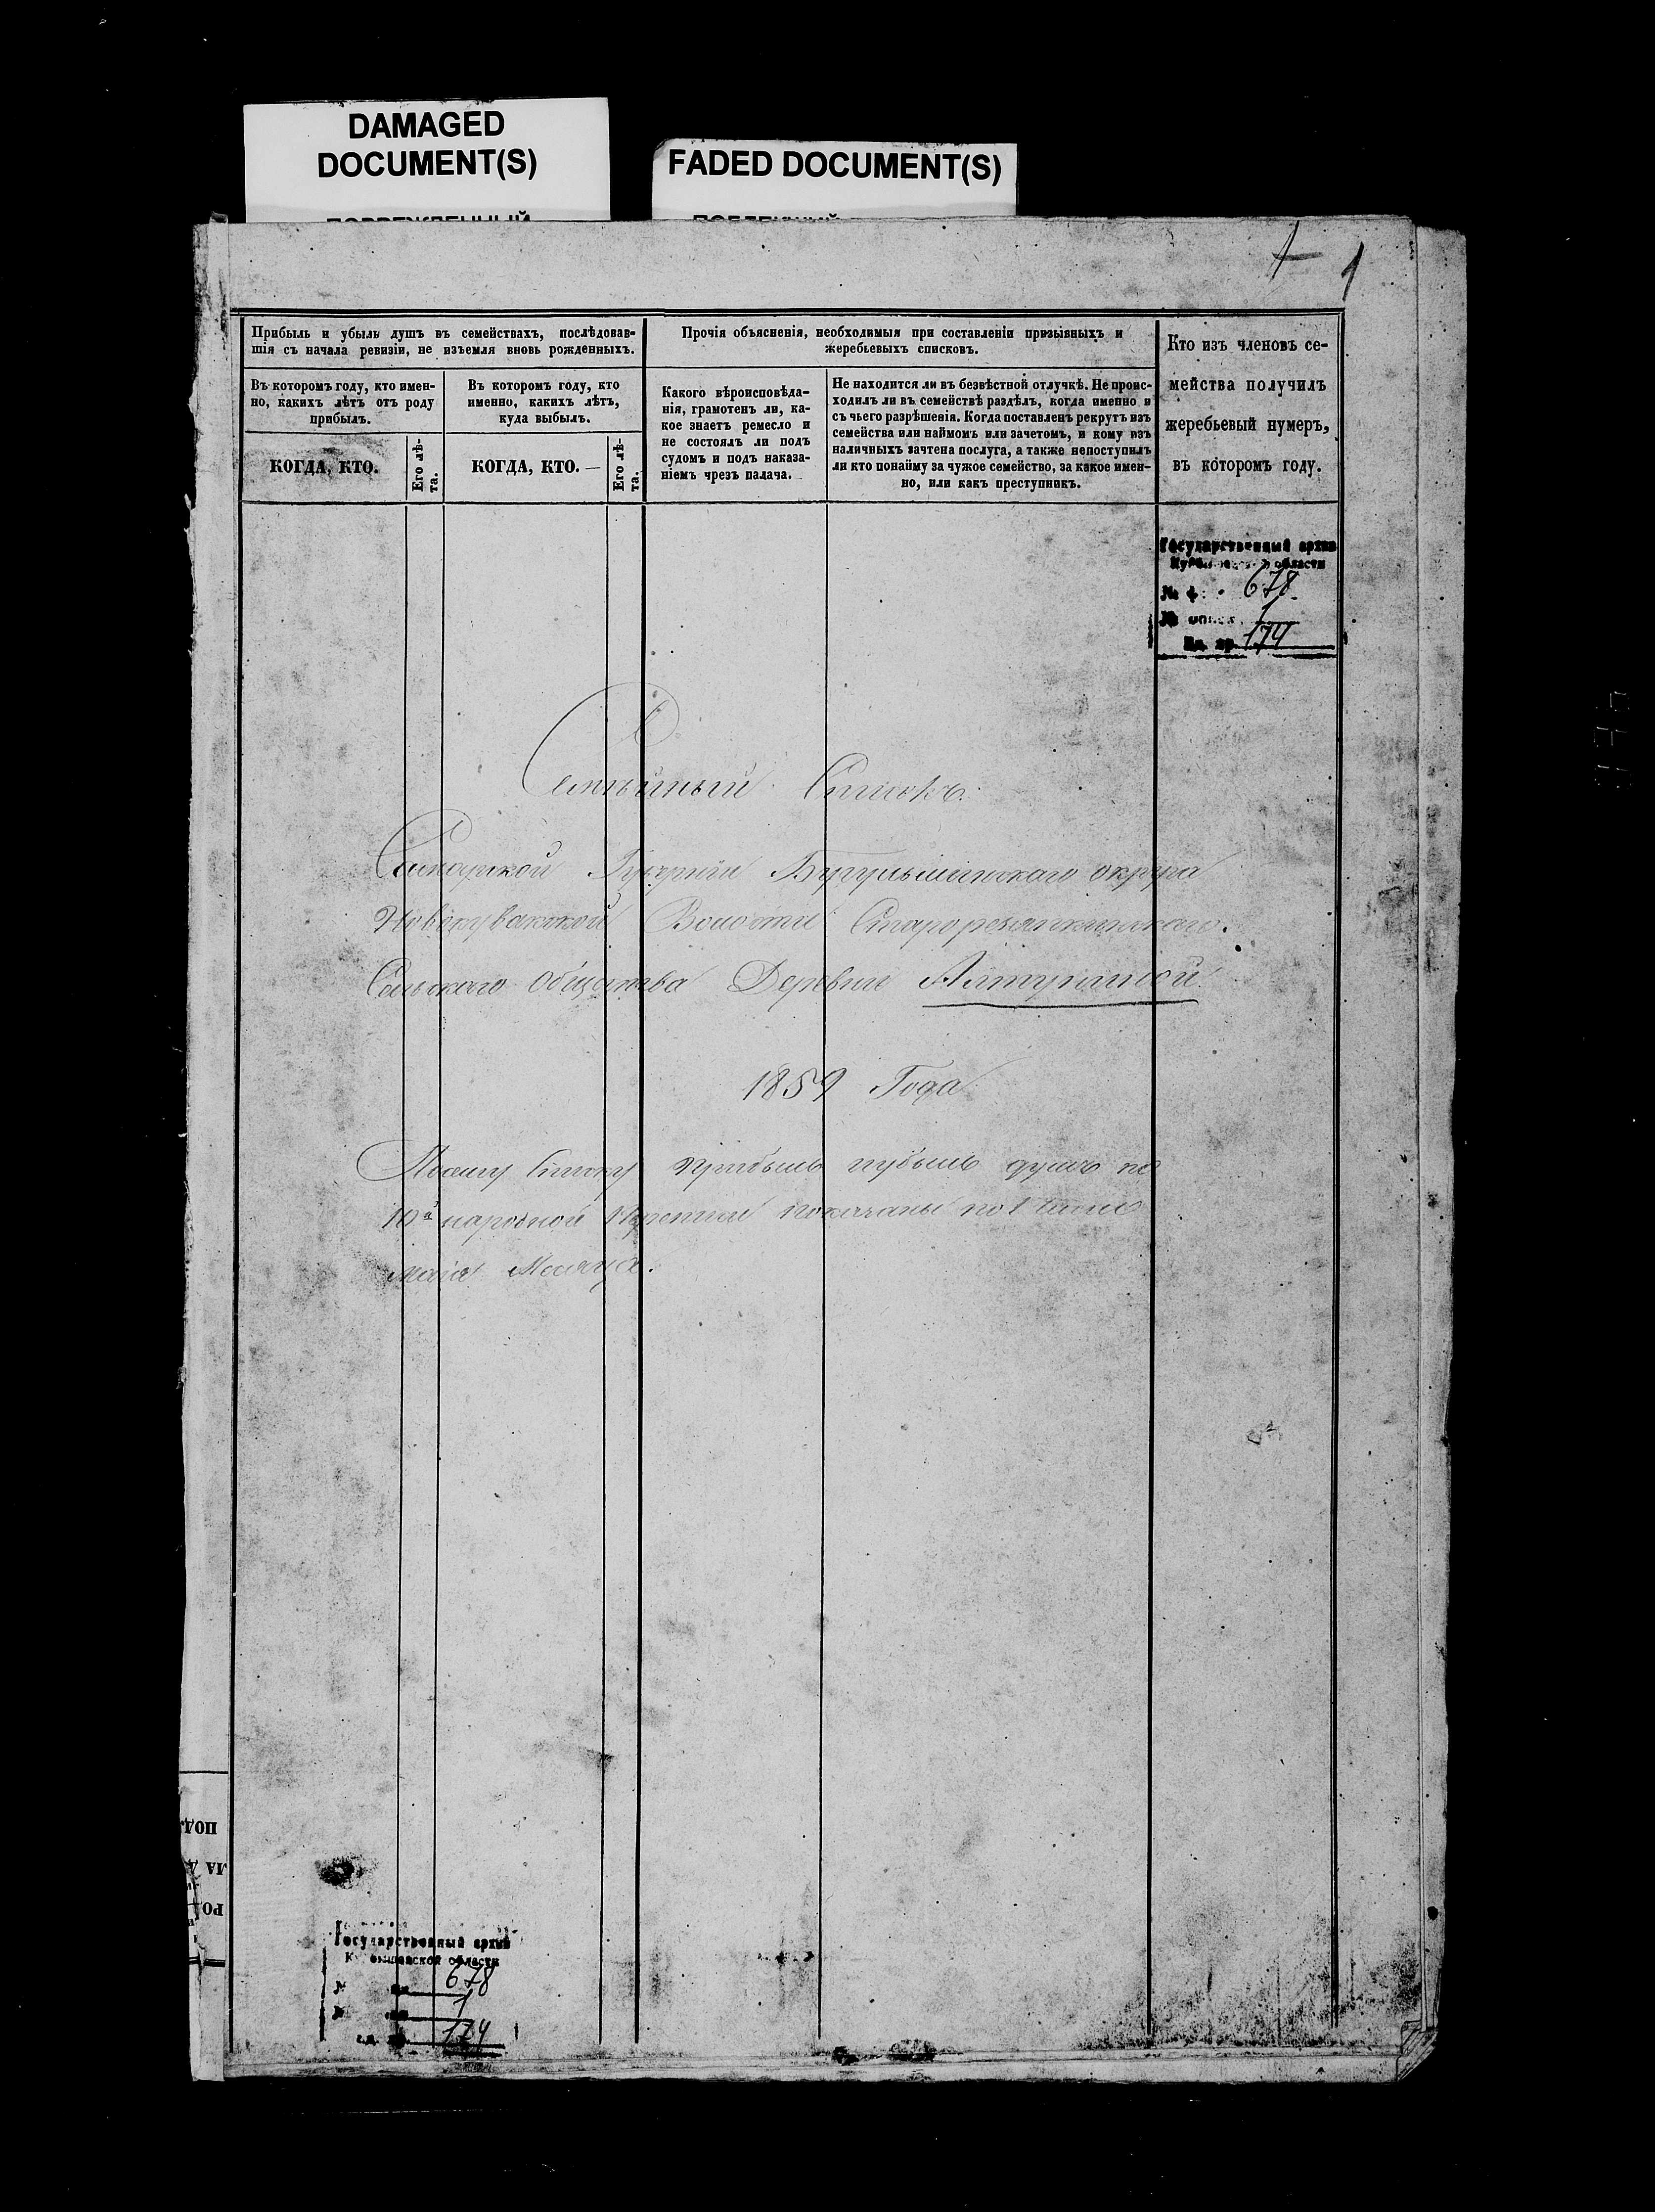 DAMAGED
DOCUMENT(S)
FADED DOCUMENT(S)
1
Прибыль и убыль душъ въ семействахъ, послѣдовав-
шія съ начала ревизіи, не изъемля вновь рожденныхъ.
Въ которомъ году, кто имен-
но, какихъ лѣтъ отъ роду
прибылъ.
КОГДА, КТО.
Его лѣ-
та.
Въ которомъ году, кто
именно, какихъ лѣтъ,
куда выбылъ.
КОГДА, КТО. —
Его лѣ-
та.
Прочія объясненія, необходимыя при составленіи призывныхъ и
жеребьевыхъ списковъ.
Какого вѣроисповѣда-
нія, грамотенъ ли, ка-
кое знаетъ ремесло и
не состоялъ ли подъ
судомъ и подъ наказа-
ніемъ чрезъ палача.
Не находится ли въ безвѣстной отлучкѣ. Не проис-
ходилъ ли въ семействѣ раздѣлъ, когда именно и
съ чьего разрѣшенія. Когда поставленъ рекрутъ изъ
семейства или наймомъ или зачетомъ, и кому изъ
наличныхъ зачтена послуга, а также непоступилъ
ли кто понайму за чужое семейство, за какое имен-
но, или какъ преступникъ.
Кто изъ членовъ се-
мейства получилъ
жеребьевый нумеръ,
въ которомъ году.
Государственный архив
области
№ 678
№ 1
174
Семейный Списокъ.
Самарской Губерніи Бугульминскаго округа
Новокувакской Волости
Сельскаго Общества Деревни
1859 Года
Списку прибыль убыль душъ по
10й народной показаны по 1 число
маія Месяца.
Государственный архив
области
678
1
174